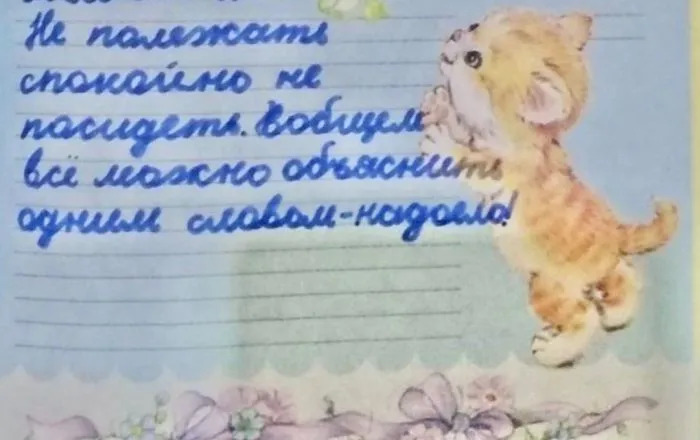 Не полежать
спокойно не
посидеть. Вобщем
всё можно объяснить
одним словом-надоело!